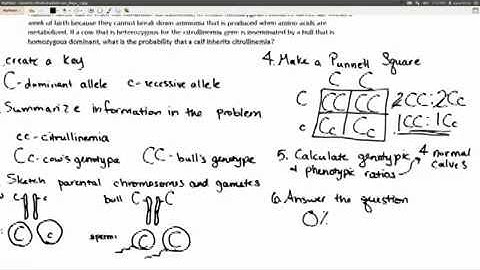 week of birth because they cannot break down ammonia that is produced when amino acids are
metabolized. If a cow that is heterozygous for the citrullinemia gene is inseminated by a bull that is
homozygous dominant, what is the probability that a calf inherits citrullinemia?
create a key
C-dominant allele c-recessive allele
Summarize information in the problem
cc-citrullinemia
Cc-cow's genotype CC-bull's genotype
Sketch parental chromosomes and gametes
c c bull C C
C c sperm: C C
4. Make a Punnett Square
C C
C CC CC 2CC:2Cc
c Cc Cc 1CC:1Cc
5. Calculate genotypic
+ phenotypic ratios 4 normal
calves
6. Answer the question
0%